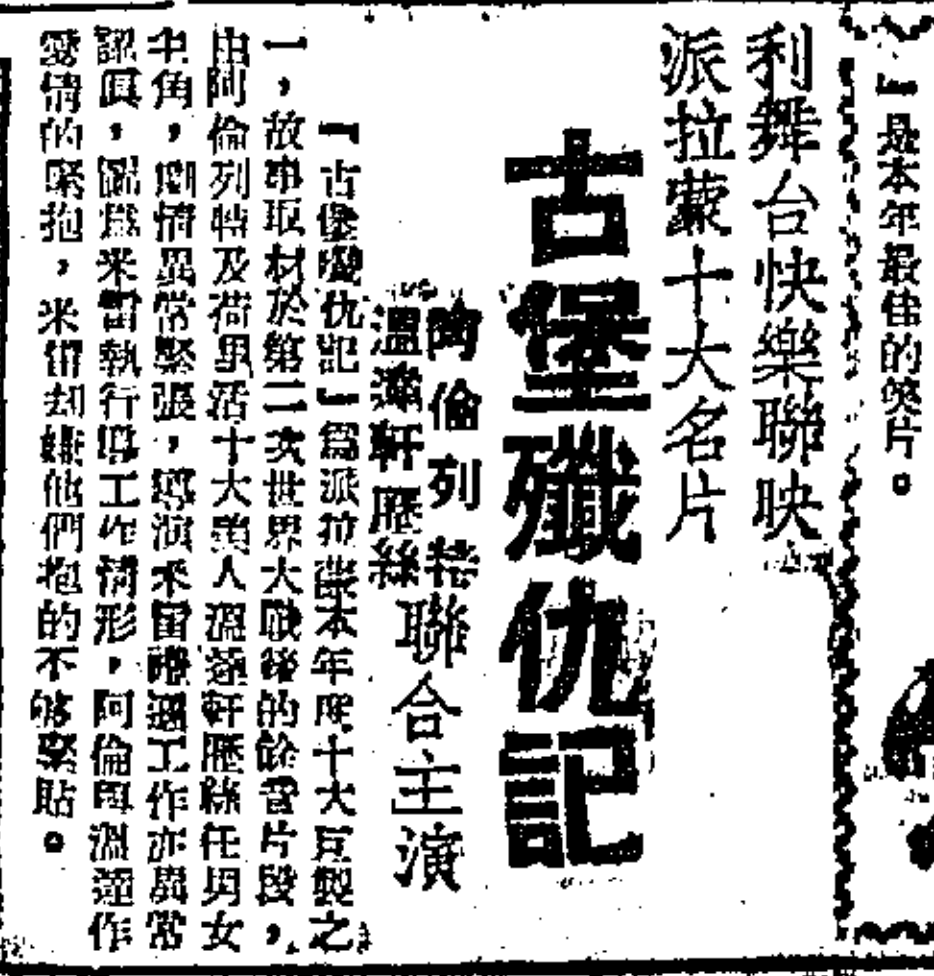 』是本年最佳的笑片。
利舞台快樂聯映
派拉蒙十大名片
古堡殲仇記
陶倫列特
溫達軒歷絲
聯合主演
『古堡殲仇記』爲派拉蒙本年度十大巨製之
一，故事取材於第二次世界大戰後的餘音片段，
由阿倫列特及荷里活十大美人溫達軒歷絲任男女
主角，劇情異常緊張，導演米留 工作亦異常
認眞，當爲米留執行導工作情形，阿倫與溫達作
愛情的緊抱，米留却嫌他們抱的不够緊貼。